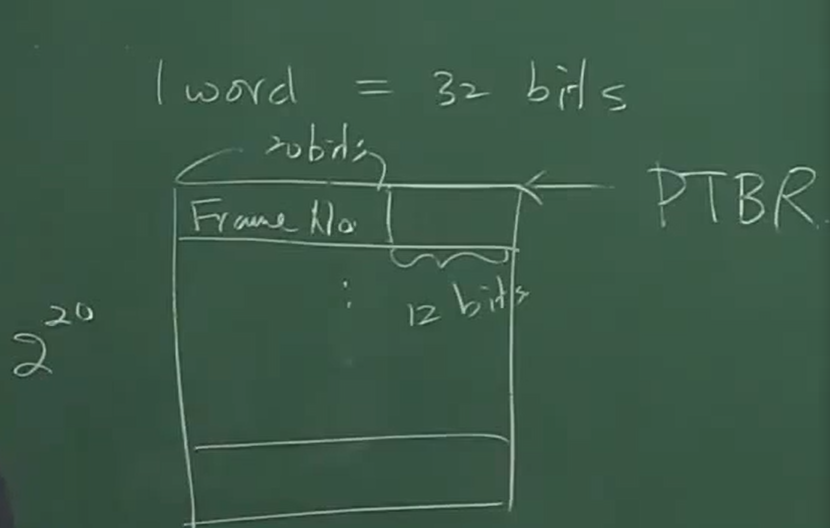 1 word = 32 bits
20 bits
Frame No
PTBR
:
12 bits
2^20